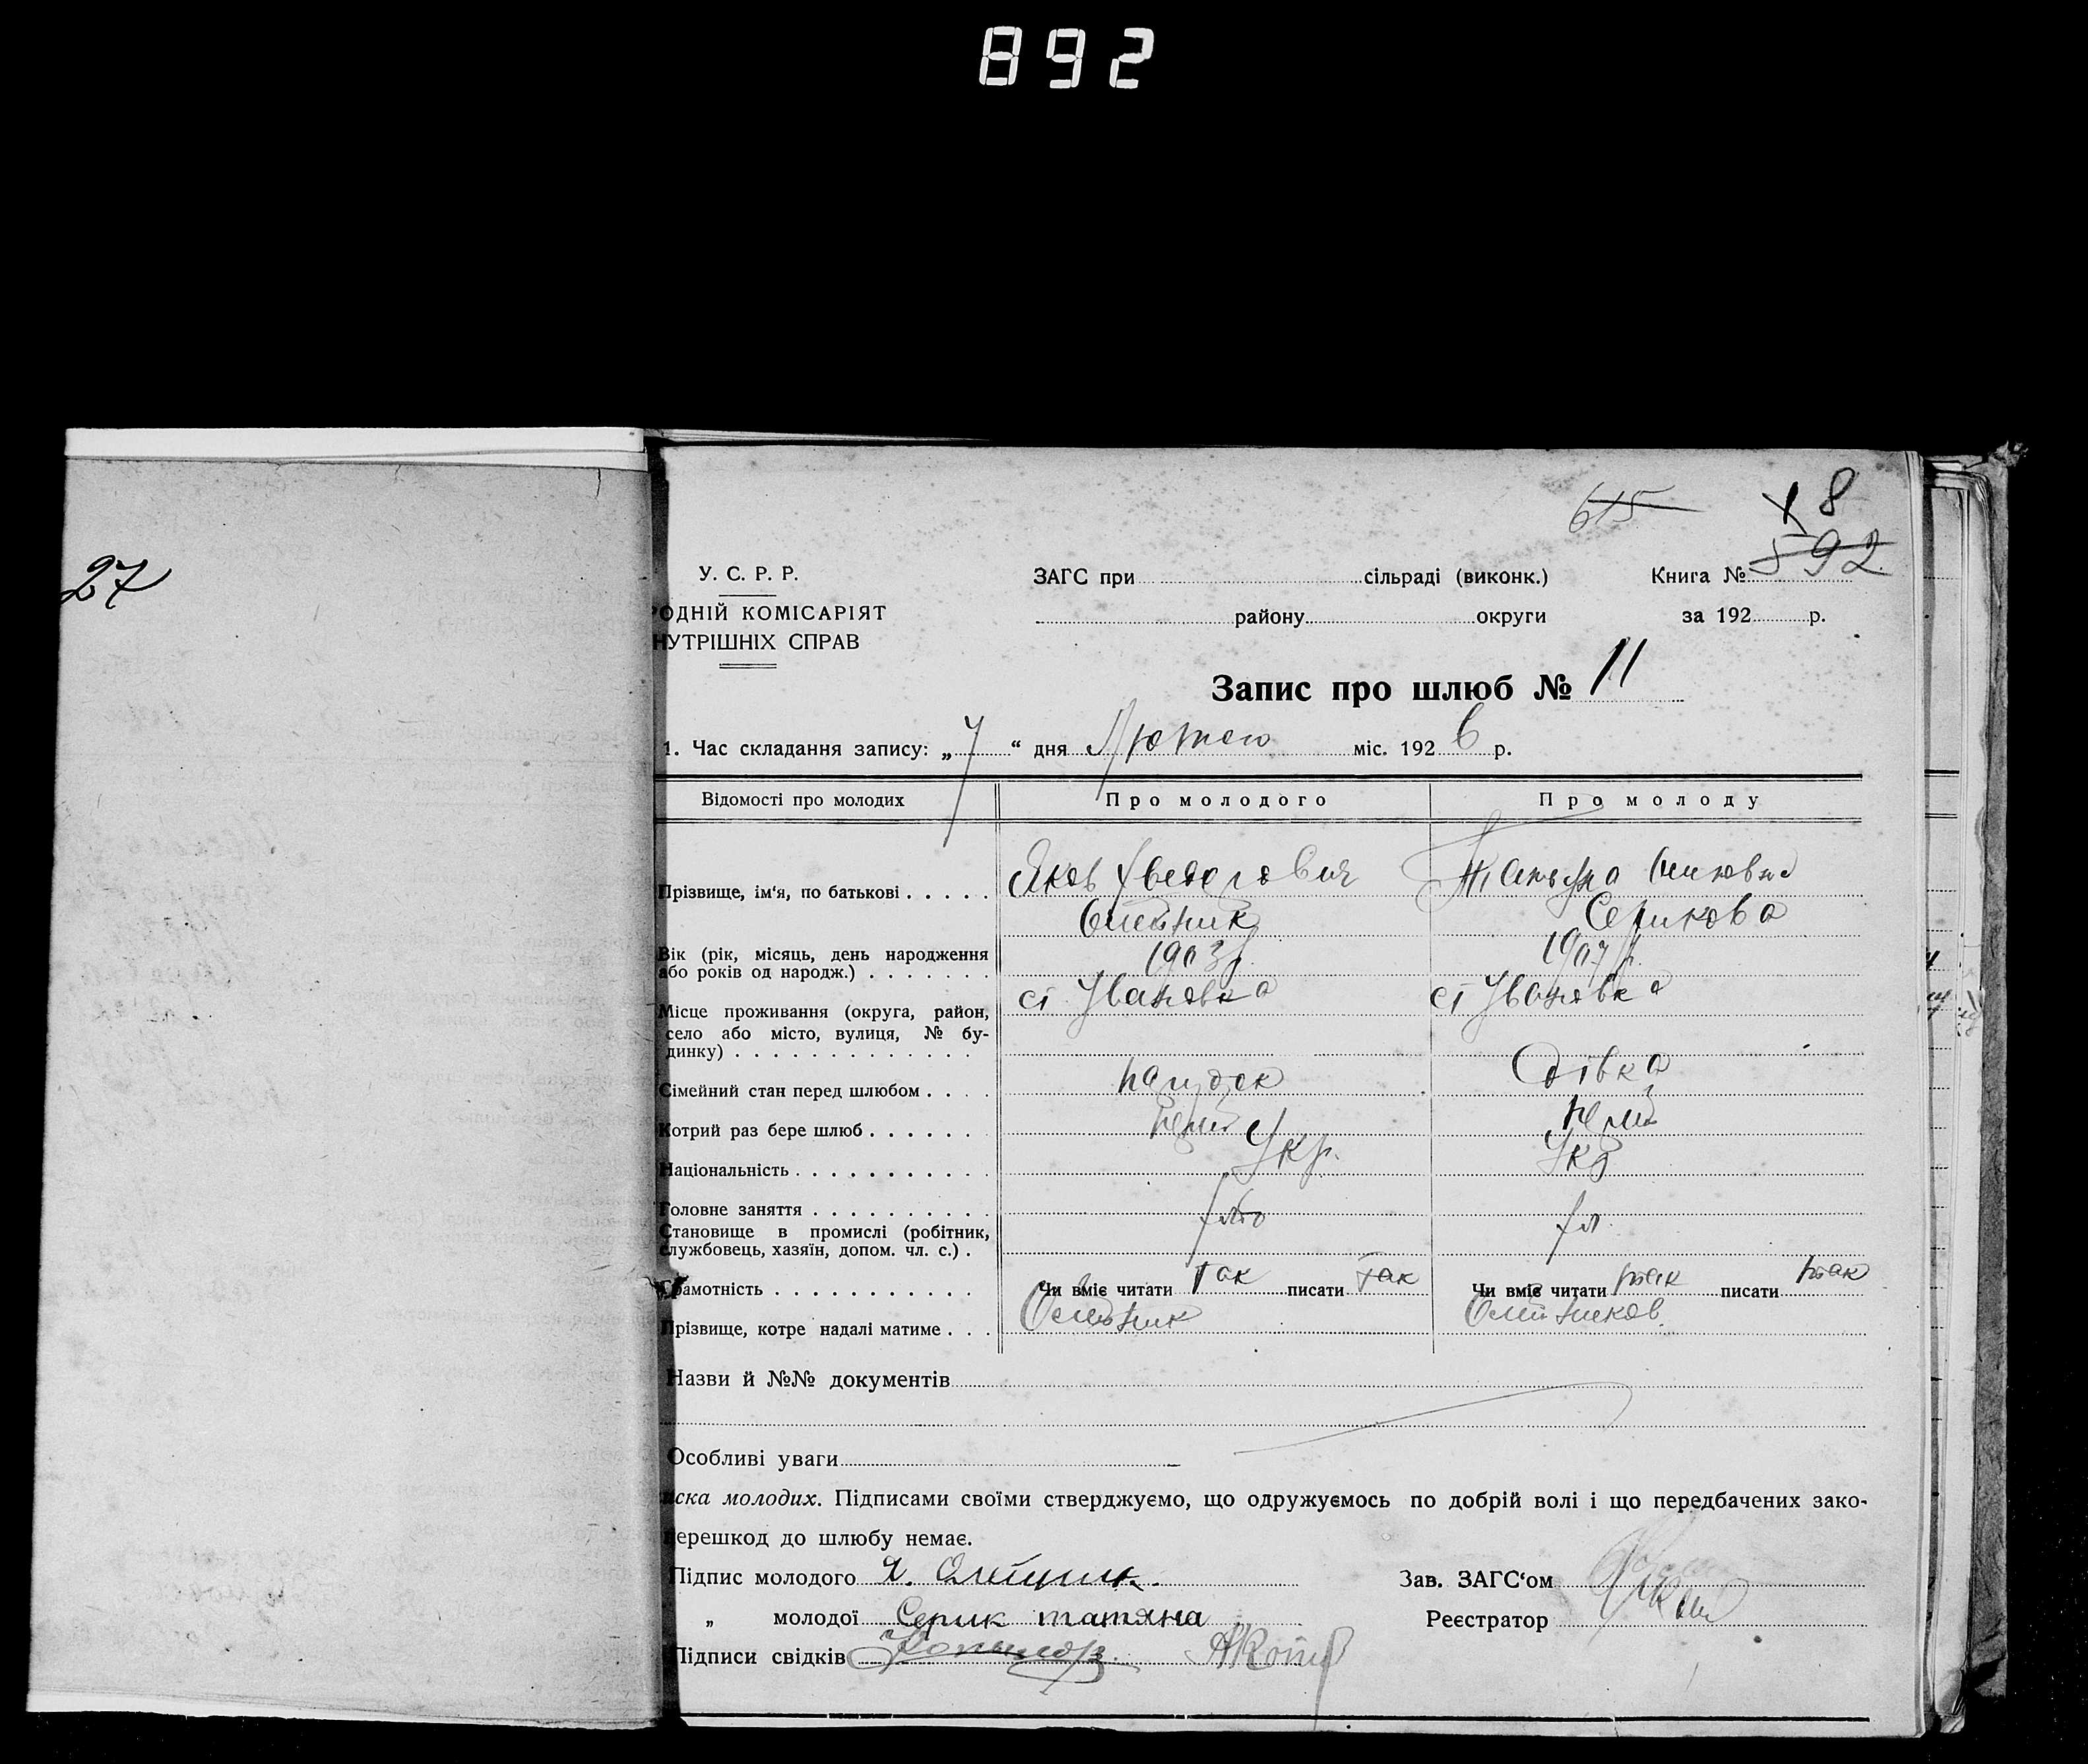 892
615
8
27
592
У. С. Р. Р.
ЗАГС при сільраді (виконк.) Книга №
ОДНІЙ КОМІСАРІЯТ
району округи за 192 р.
НУТРІШНІХ СПРАВ
Запис про шлюб № 11
1. Час складання запису: „ 7 “ дня Лютого міс. 192 6 р.
Відомості про молодих Про молодого Про молоду
Прізвище, ім‘я, по батькові Яков
Олейник Серикова
Вік (рік, місяць, день народження 1903 р. 1907 р.
або років од народж.)
ст Івановка ст Івановка
Місце проживання (округа, район,
село або місто, вулиця, № бу-
динку)
Сімейний стан перед шлюбом парубок дівка
Котрий раз бере шлюб перший
Національність Укр. Укр
Головне заняття
Становище в промислі (робітник,
службовець, хазяїн, допом. чл. с.)
Грамотність Чи вміє читати так писати так Чи вміє читати так писати так
Прізвище, котре надалі матиме Олейник
Назви й №№ документів
Особливі уваги
иска молодих. Підписами своїми стверджуємо, що одружуємось по добрій волі і що передбачених зако-
перешкод до шлюбу немає.
Підпис молодого Я. Олейник. Зав. ЗАГС‘ом
„ молодої Серик татяна Реєстратор
Підписи свідків